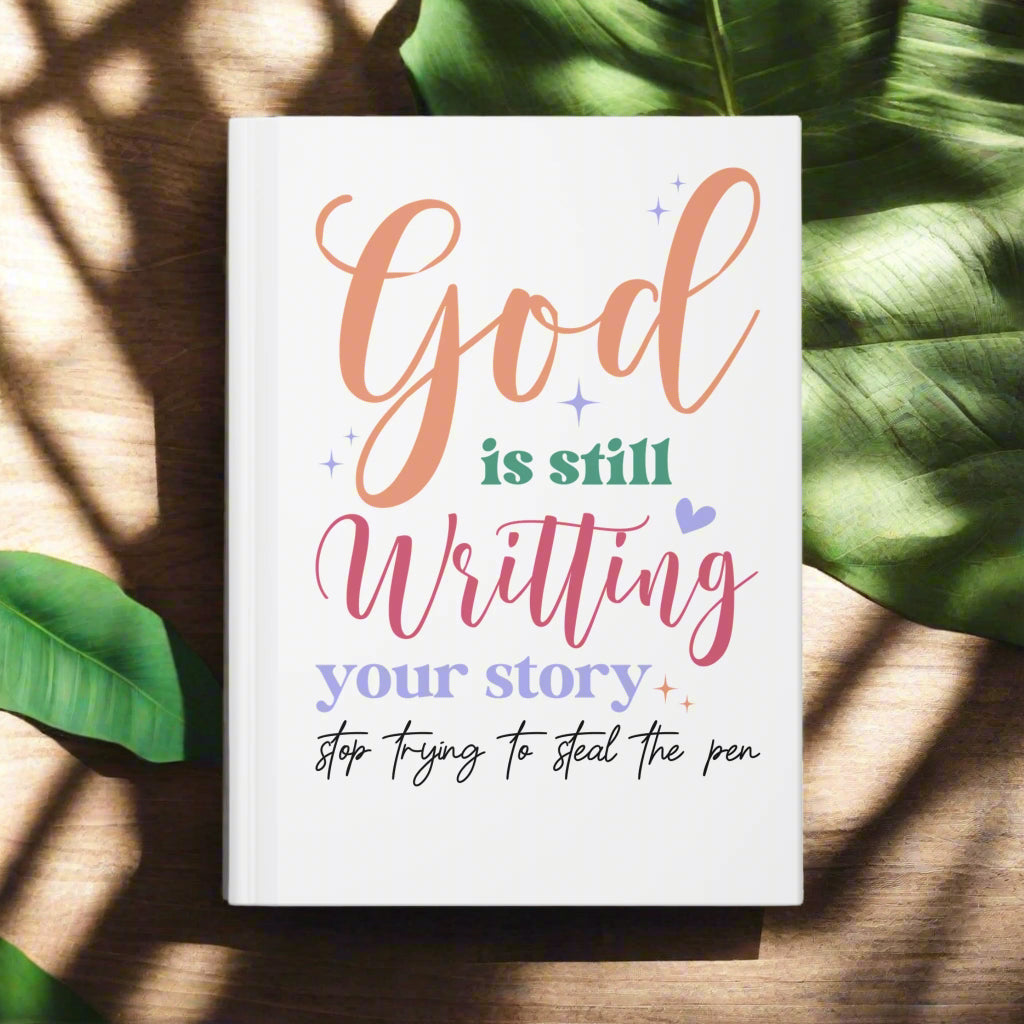 God
is still
Writting
your story
stop trying to steal the pen